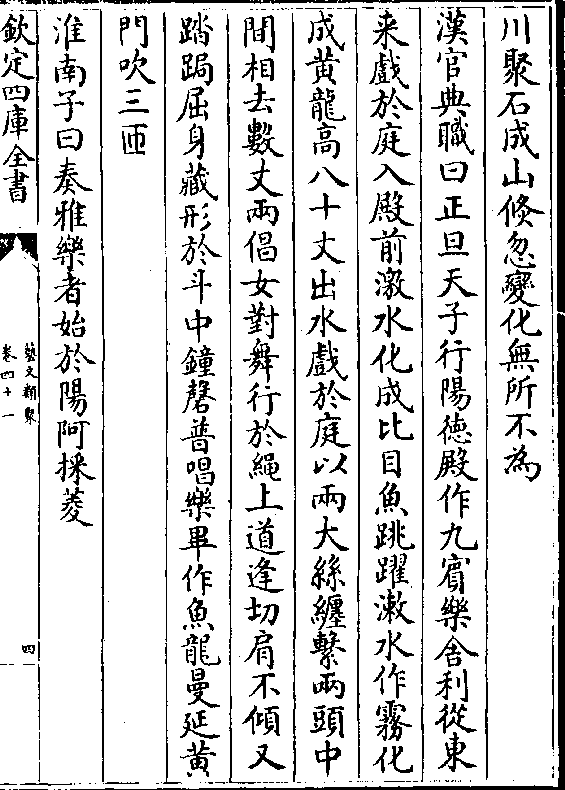 川聚石成山倐忽變化無所不為
漢官典職曰正旦天子行陽徳殿作九賓樂舍利從東
来戲於庭入殿前激水化成比目魚跳躍漱水作霧化
成黄龍高八十丈出水戲於庭以兩大絲纒繫兩頭中
間相去數丈兩倡女對舞行於繩上道逢切肩不傾又
踏跼屈身藏形於斗中鐘磬普唱樂畢作魚龍曼延黄
門吹三匝
淮南子曰奏雅樂者始於陽阿採菱
欽定四庫全書
藝文類聚
卷四十一
四